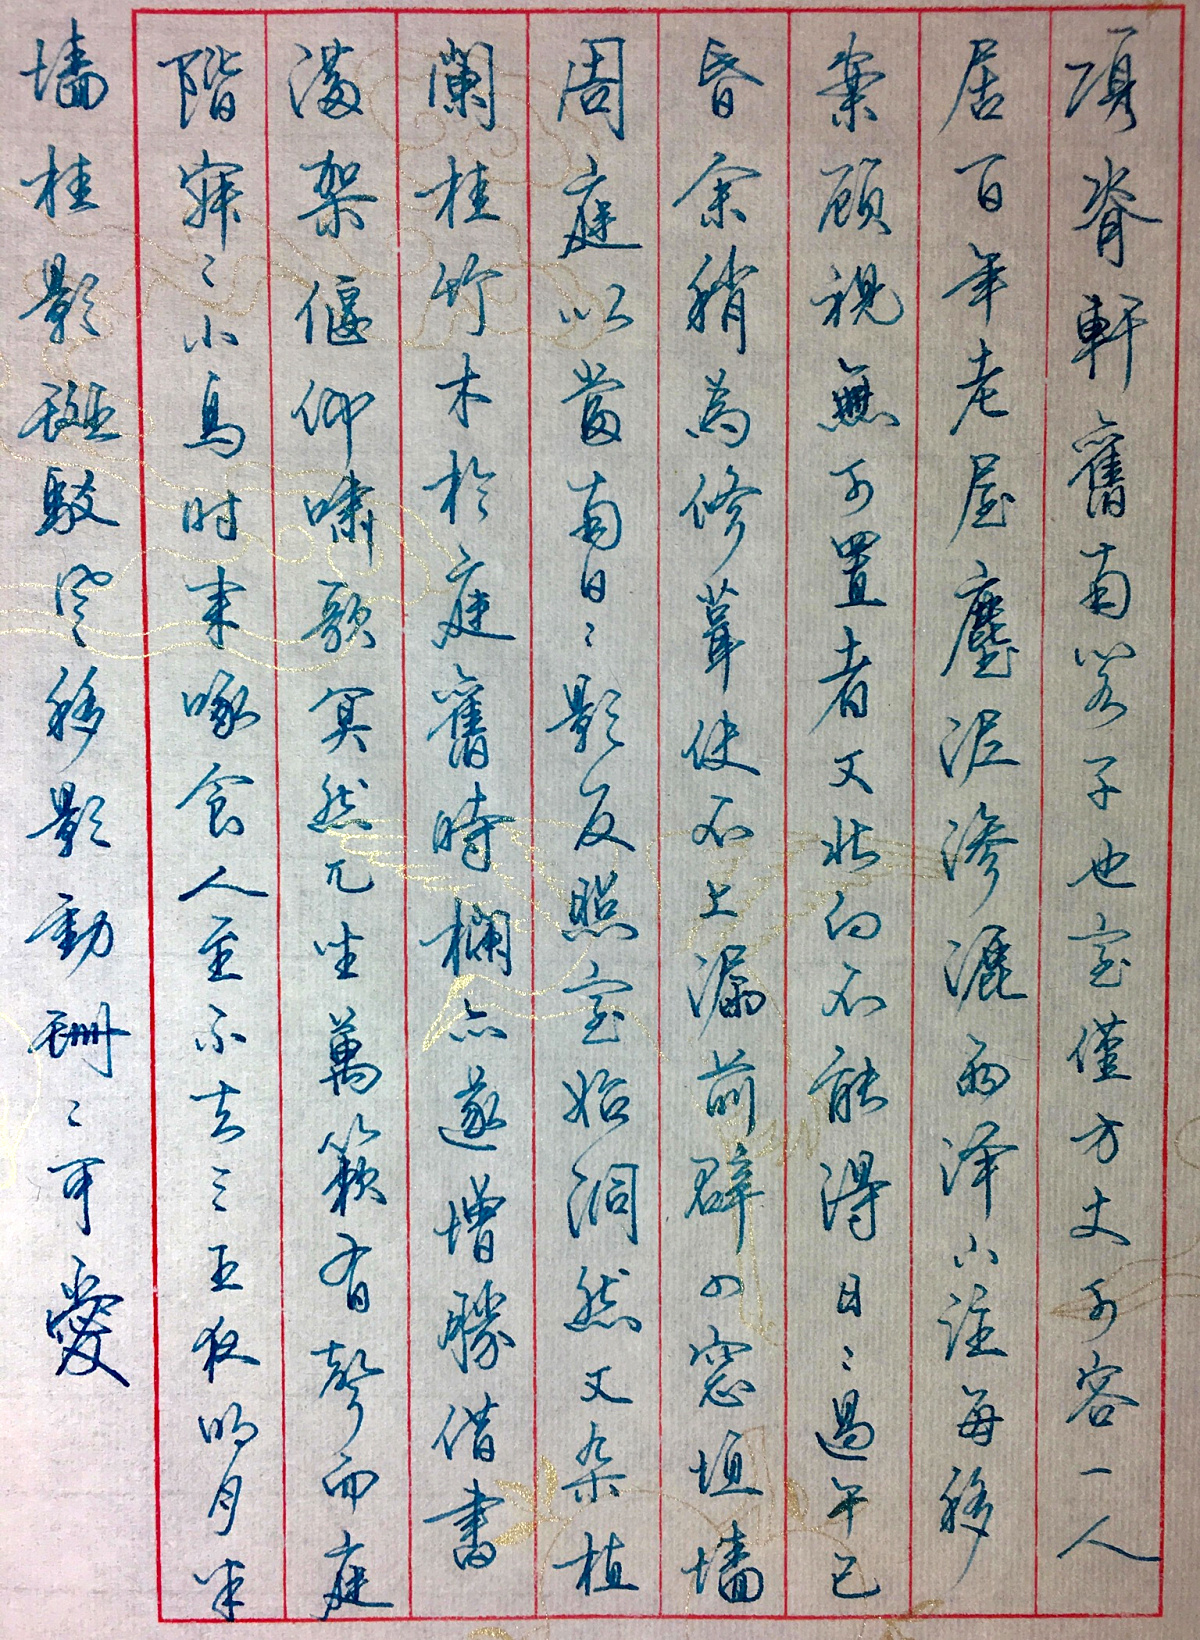 項脊軒舊南閤子也室僅方丈可容一人
居百年老屋塵泥滲漉雨泽下注每移
案顧視無可置者又北向不能得日〻過午已
昏余稍為修葺使不上漏前辟四窓垣墻
周庭以當南日〻影反照室始洞然又杂植
蘭桂竹木於庭舊時欄亦遂增勝借書
滿架偃仰嘯歌冥然兀坐萬籟有聲而庭
階寂〻小鳥时来啄食人至不去三五夜明月半
墻桂影斑駁風移影動珊〻可愛